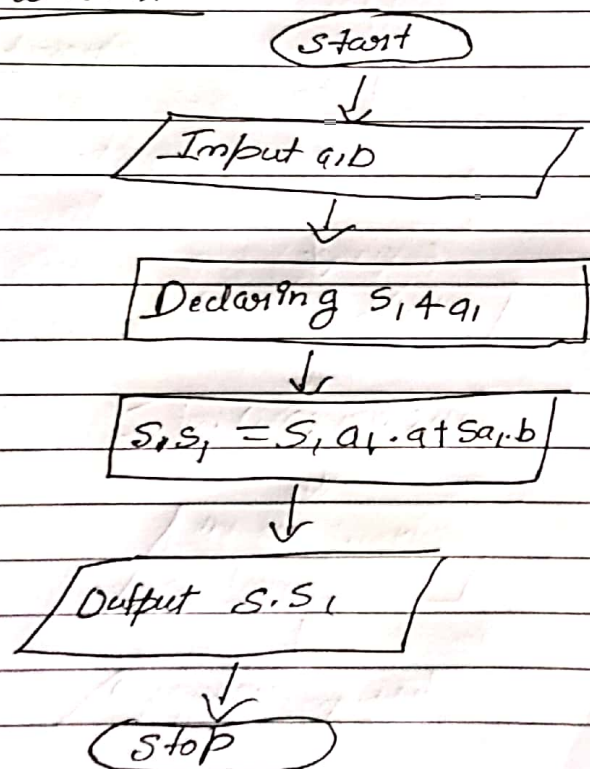 Start
Input a,b
Declaring S, & a,
S.S, = S, a, . a + Sa, . b
Output S.S,
Stop